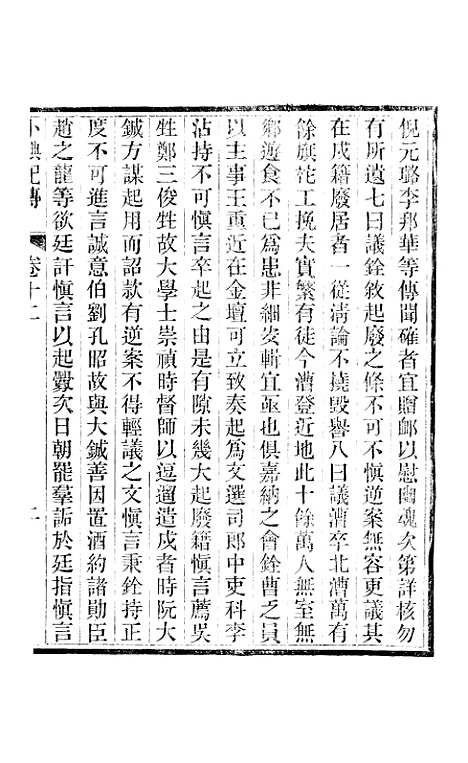 倪元璐李邦華等傳聞確者宜贈䘏以慰幽魂次第詳核勿
有所遺七曰議銓敘起廢之條不可不愼逆案無容更議其
在戍籍廢居者一從淸論不撓毀譽八曰議漕卒北漕萬有
餘旗柁工挽夫實繁有徒今漕登近地此十餘萬人無室無
鄉遊食不已爲患非細安輯宜亟也俱嘉納之會銓曹乏員
以主事王重近在金壇可立致奏起爲文選司郎中吏科李
沾持不可愼言卒起之由是有隙未幾大起廢籍愼言薦吳
甡鄭三俊甡故大學士崇禎時督師以逗遛遣戍者時阮大
鋮方謀起用而詔款有逆案不得輕議之文愼言秉銓持正
度不可進言誠意伯劉孔昭故與大鋮善因置酒約諸勛臣
趙之龍等欲廷訐愼言以起釁次日朝罷羣詬於廷指愼言
小典紀傳
卷十二
二